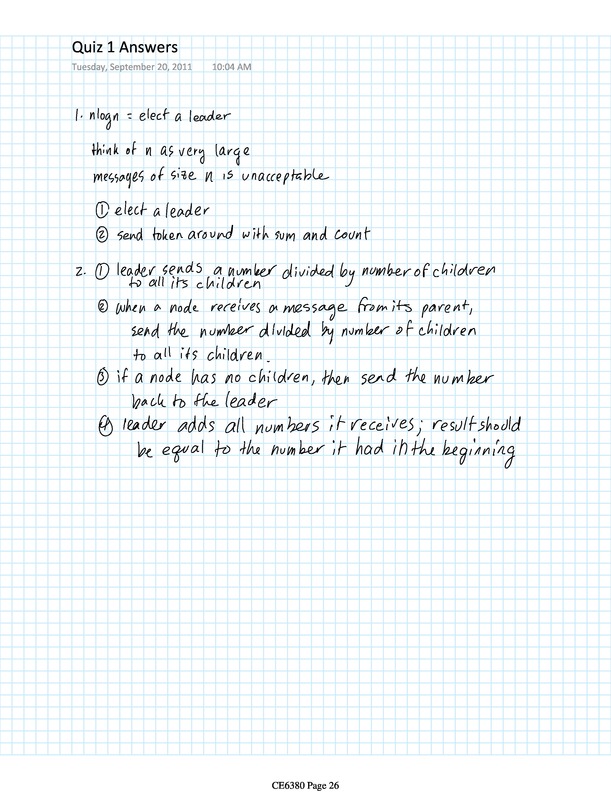 Quiz 1 Answers
Tuesday, September 20, 2011 10:04 AM
1. nlogn = elect a leader
think of n as very large
messages of size n is unacceptable
① elect a leader
② send token around with sum and count
2. ① leader sends a number divided by number of children
to all its children
② when a node receives a message from its parent,
send the number divided by number of children
to all its children.
③ if a node has no children, then send the number
back to the leader
④ leader adds all numbers it receives; result should
be equal to the number it had in the beginning
CE6380 Page 26